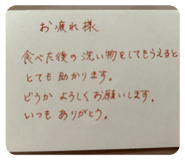 お疲れ様
食べた後の洗い物をしてもらえると
とても助かります。
どうかよろしくお願いします。
いつもありがとう。